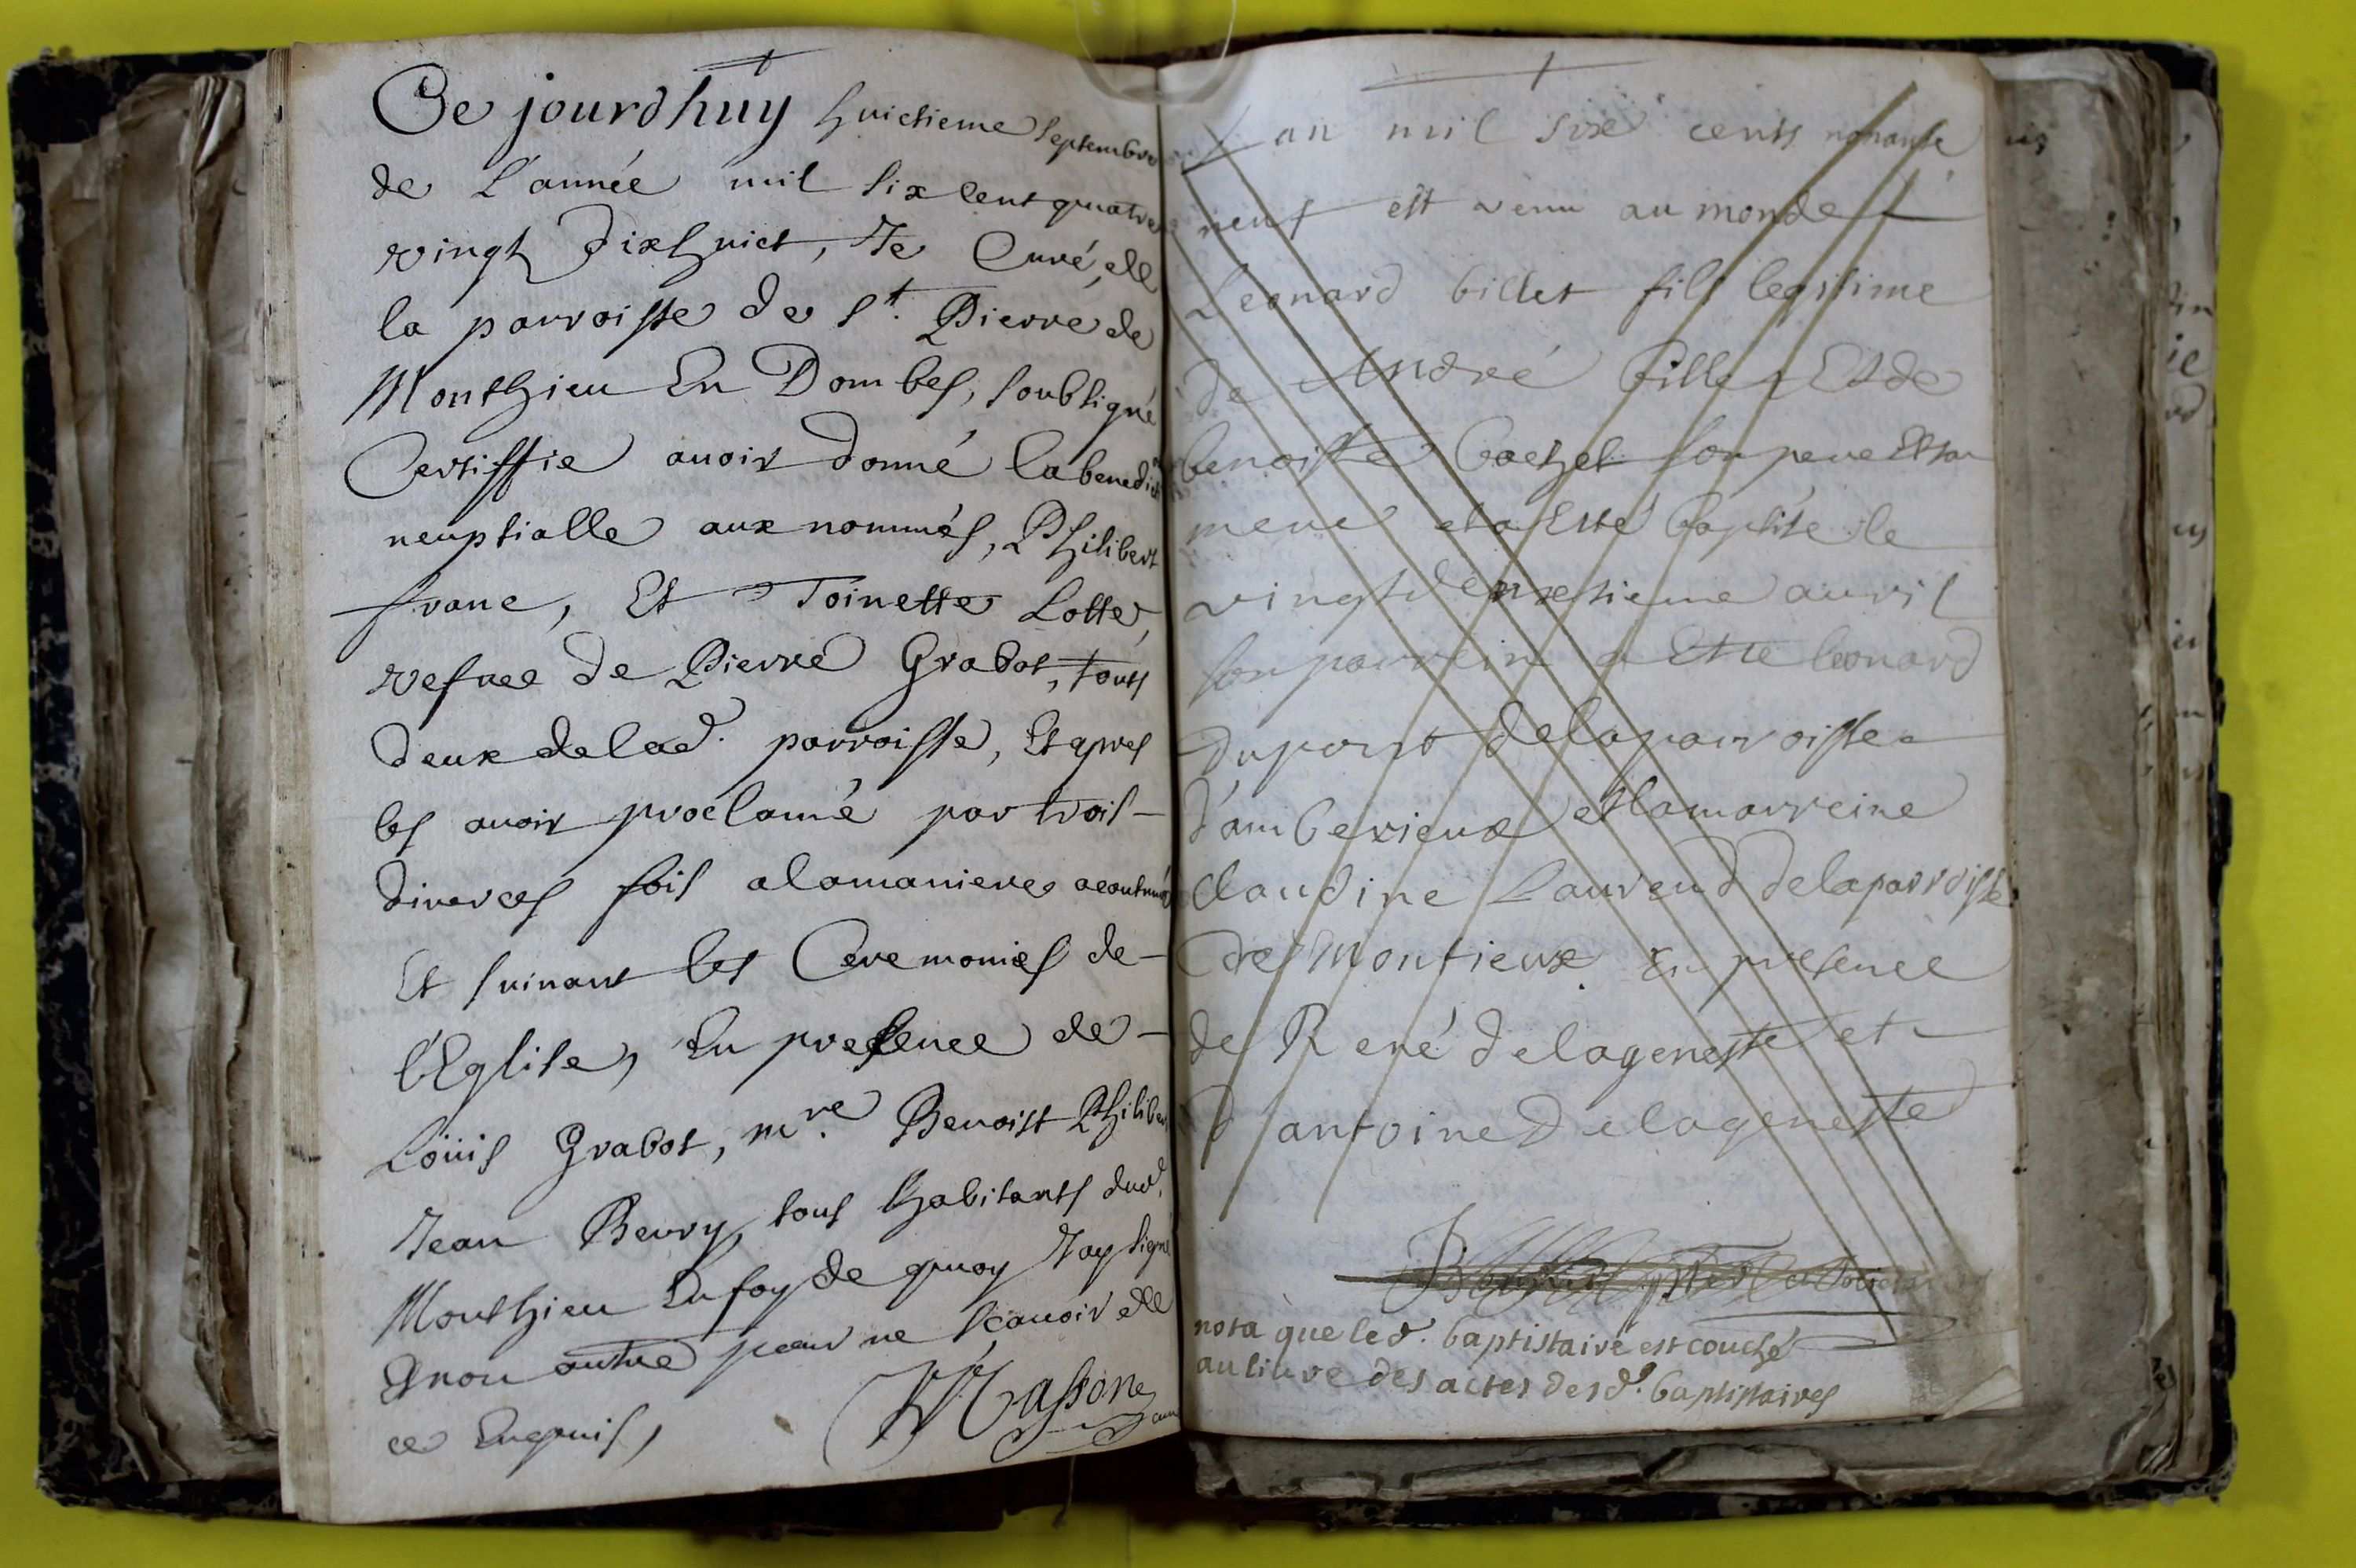 Ce jourdhuy huictieme septembre
de L'année mil six cent quatre
vingt dixhuict, Je Curé de
la parroisse de St. Pierre de
Monthieu En Dombes, soubsigné
Certiffie auoir donné la benedi
neuptialle aux nommés, Philibert
franc, Et Toinette Lotte,
vefuee de Pierre Grabot, touts
deux de lad. parroisse, Et apres
les auoir proclamé par trois
diverces fois a la maniere acoutumé
Et suiuant les Ceremonies de
l'Eglise, En presence de
Loüis Grabot, mre. Benoist Philiber
Jean Beury, tous habitants dud.
Monthieu En foy de quoy J'ay signé
Et non autre pour ne scauoir de
ce Enquis,
an mil six cents nonante
neuf est venu au monde
Leonard billet fils legitime
de André billet Et de
benoiste bachet son pere Et sa
mere et a Esté baptisé le
vingt deuxsieme auril
son parrein a Esté leonard
dupont de la parroisse
d'amberieux et la marreine
Claudine Laurend de la parroisse
de Montieux En presence
de René delageneste et
d antoine Delageneste
nota que led. baptistaire est couché
au liure des actes des d. baptistaires